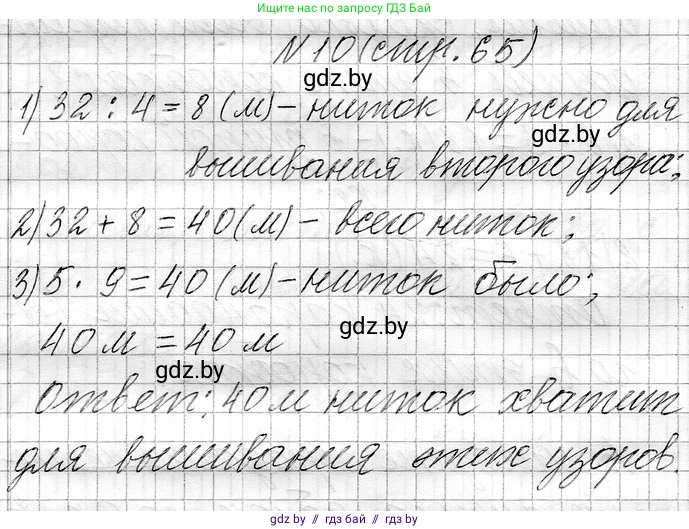 Ищите нас по запросу ГДЗ Бай
N 10 (стр. 65)
gdz.by
1) 32 : 4 = 8 (м) - ниток нужно для
gdz.by
вышивания второго узора;
2) 32 + 8 = 40 (м) - всего ниток;
3) 5 · 9 = 40 (м) - ниток было;
gdz.by
40 м = 40 м
gdz.by
Ответ: 40 м ниток хватит
для вышивания этих узоров.
gdz.by // гдз бай // gdz.by